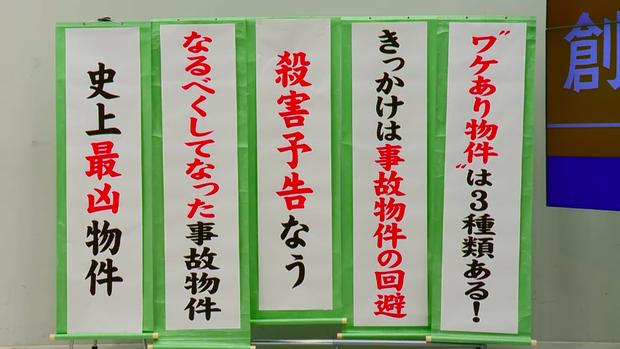 “ワケあり物件”は3種類ある!
きっかけは事故物件の回避
殺害予告なう
なるべくしてなった事故物件
史上最凶物件
創